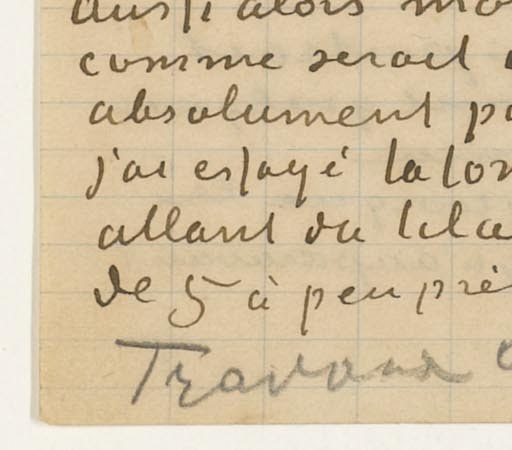 aussi alors mo
comme serait
absolument p
j'ai essayé la
allant du lila
de 5 à peu prè
Travaux